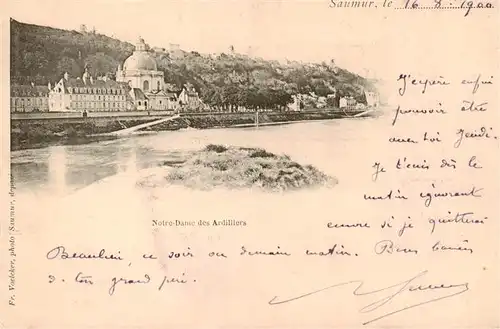 Saumur, le 16 8 1900
J'espère enfin
pouvoir être
avec toi Jeudi.
je t'écris dès le
matin ignorant
encore si je quitterai
Notre-Dame des Ardilliers
Beaulieu, ce soir ou demain matin. Bons baisers
à ton grand père.
Fr. Voelcker, photo (Saumur, déposé